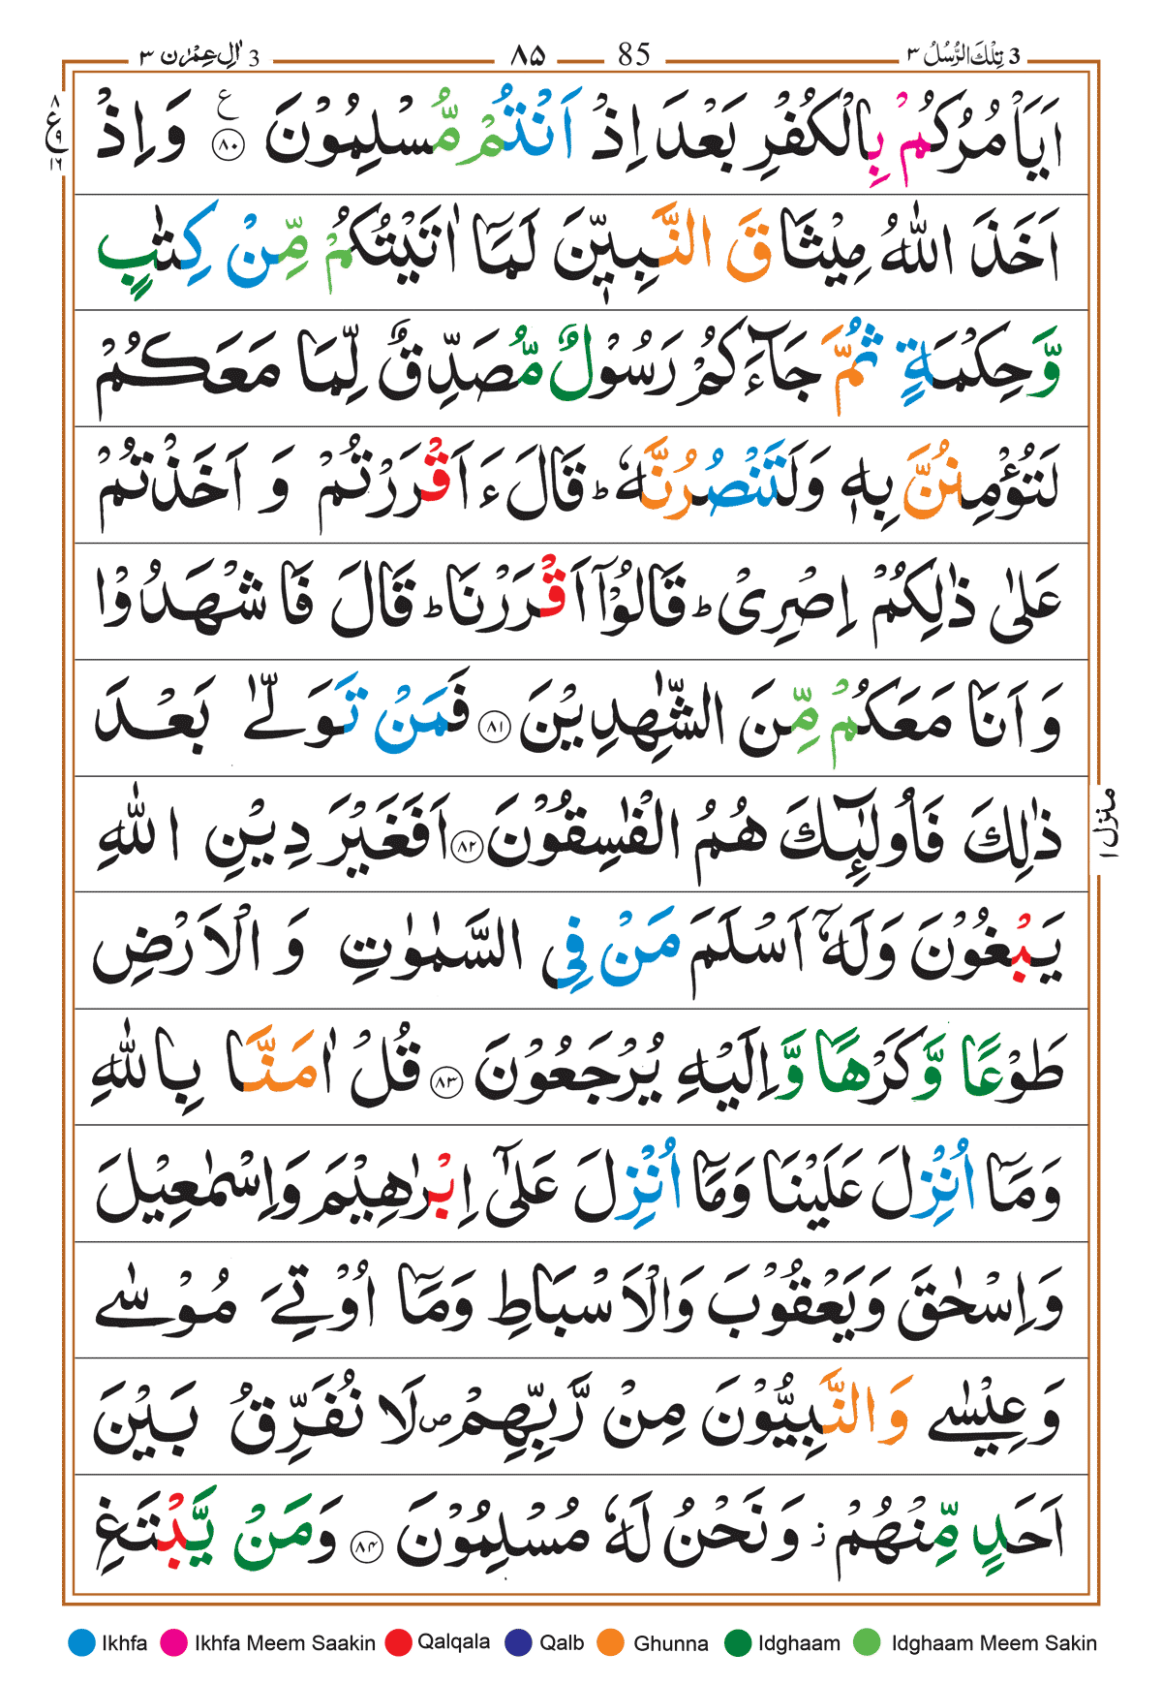 3 تِلْكَ الرُّسُلُ ٣ 85 ٨٥ 3 اٰلِ عِمْرٰن ٣
اَيَاْمُرُكُمْ بِالْكُفْرِ بَعْدَ اِذْ اَنْتُمْ مُّسْلِمُوْنَ ۧ ٨٠ وَاِذْ
٨ ع ٩ ١٦
اَخَذَ اللّٰهُ مِيْثَاقَ النَّبِيّٖنَ لَمَاۤ اٰتَيْتُكُمْ مِّنْ كِتٰبٍ
وَّحِكْمَةٍ ثُمَّ جَآءَكُمْ رَسُوْلٌ مُّصَدِّقٌ لِّمَا مَعَكُمْ
لَتُؤْمِنُنَّ بِهٖ وَلَتَنْصُرُنَّهٗ ؕ قَالَ ءَاَقْرَرْتُمْ وَ اَخَذْتُمْ
عَلٰى ذٰلِكُمْ اِصْرِىْ ؕ قَالُوْۤا اَقْرَرْنَا ؕ قَالَ فَاشْهَدُوْا
وَ اَنَا مَعَكُمْ مِّنَ الشّٰهِدِيْنَ ٨١ فَمَنْ تَوَلّٰى بَعْدَ
ذٰلِكَ فَاُولٰٓئِكَ هُمُ الْفٰسِقُوْنَ ٨٢ اَفَغَيْرَ دِيْنِ اللّٰهِ
منزل ١
يَبْغُوْنَ وَلَهٗۤ اَسْلَمَ مَنْ فِى السَّمٰوٰتِ وَ الْاَرْضِ
طَوْعًا وَّكَرْهًا وَّاِلَيْهِ يُرْجَعُوْنَ ٨٣ قُلْ اٰمَنَّا بِاللّٰهِ
وَمَاۤ اُنْزِلَ عَلَيْنَا وَمَاۤ اُنْزِلَ عَلٰٓى اِبْرٰهِيْمَ وَاِسْمٰعِيْلَ
وَاِسْحٰقَ وَيَعْقُوْبَ وَالْاَسْبَاطِ وَمَاۤ اُوْتِىَ مُوْسٰى
وَعِيْسٰى وَالنَّبِيُّوْنَ مِنْ رَّبِّهِمْ ص لَا نُفَرِّقُ بَيْنَ
اَحَدٍ مِّنْهُمْ ز وَنَحْنُ لَهٗ مُسْلِمُوْنَ ٨٤ وَمَنْ يَّبْتَغِ
Ikhfa Ikhfa Meem Saakin Qalqala Qalb Ghunna Idghaam Idghaam Meem Sakin